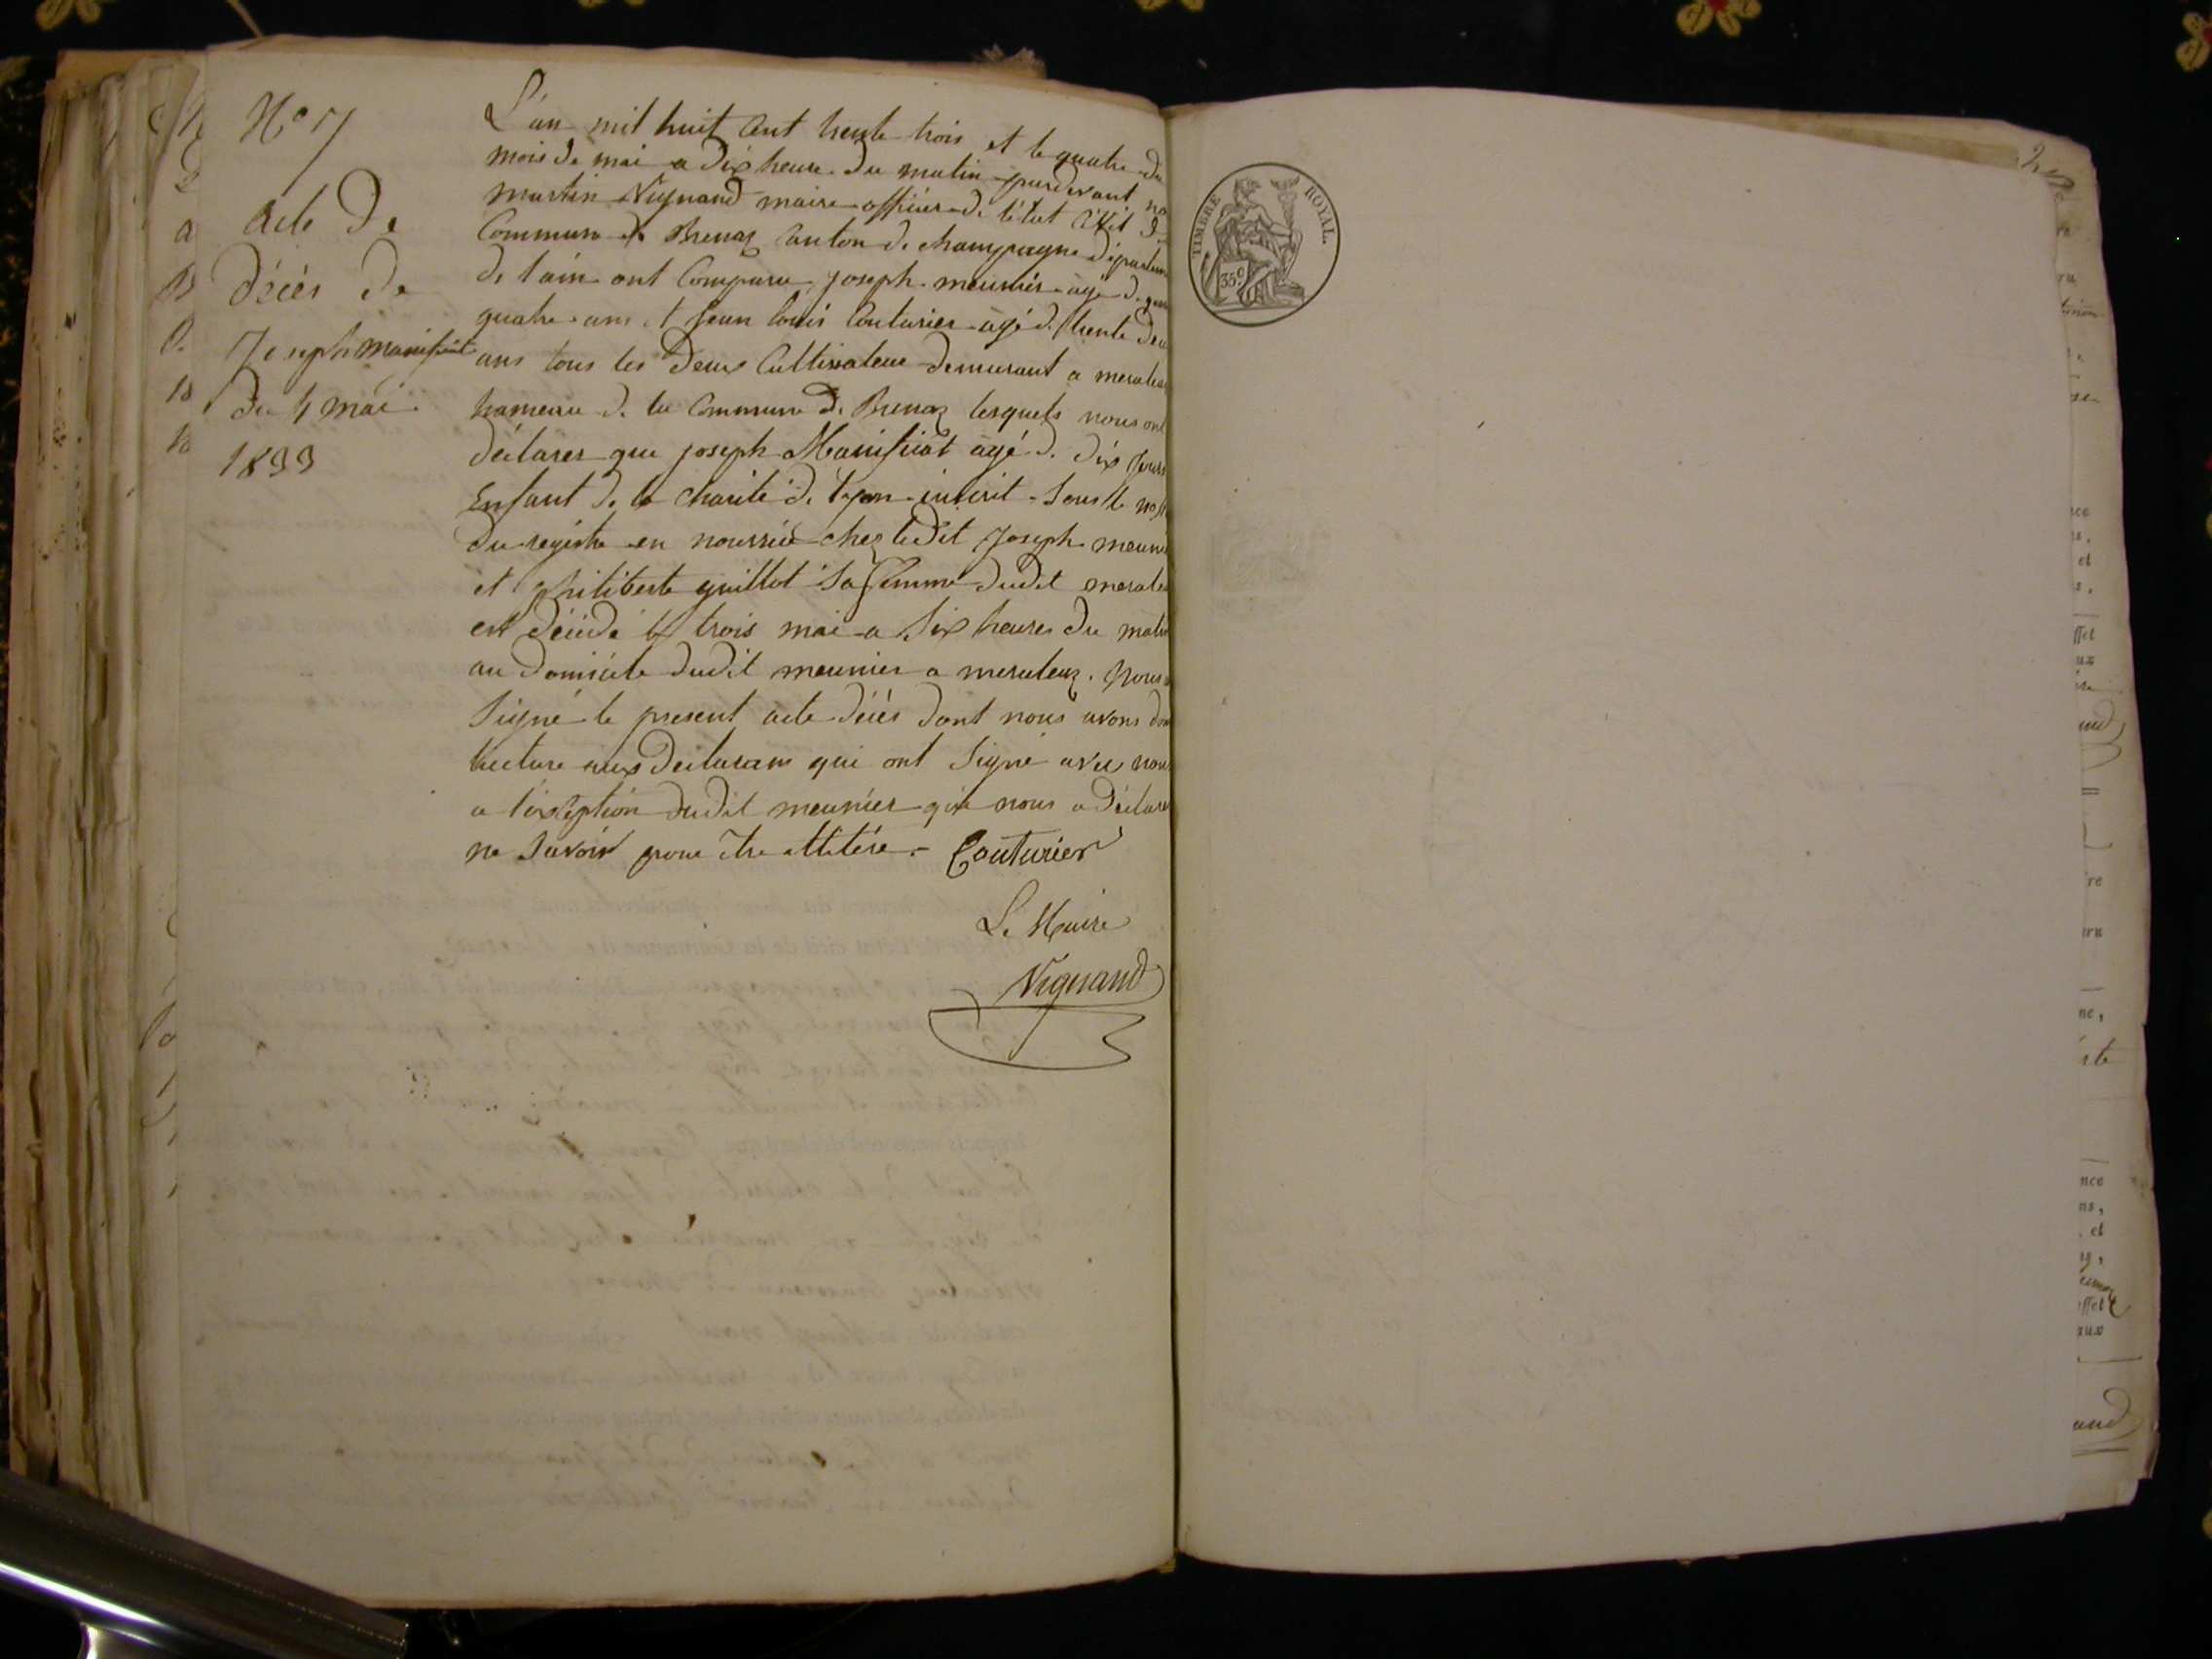 N° 7
acte de
décès de
Joseph manifiat
du 4 mai
1833
L'an mil huit cent trente trois et le quatre du
mois de mai a dix heure du matin pardevant no
martin Vignand maire officier de l'état civil de
Commune de Brenaz canton de champagne départem
de l'ain ont Comparu joseph meunier agé de
quatre ans et Jean louis Couturier agé de trente deu
ans tous les deux Cultivateur demurant a
hameau de la Commune de Brenaz lesquels nous ont
déclarer que joseph Manifiat agé de dix jours
Enfant de la charité de lyon inscrit sous le no
du registre en nourrice chez ledit Joseph meuni
et philiberte guillot sa femme dudit
est décédé le trois mai a six heures du matin
au domicile dudit meunier a meraleaz. Nous
Signé le present acte décès dont nous avons don
lecture aux declarans qui ont Signé avec nous
a l'exseption dudit meunier qui nous a déclare
ne Savoir pour etre illitéré. Couturier
Le Maire
Vignand
TIMBRE ROYAL.
35c